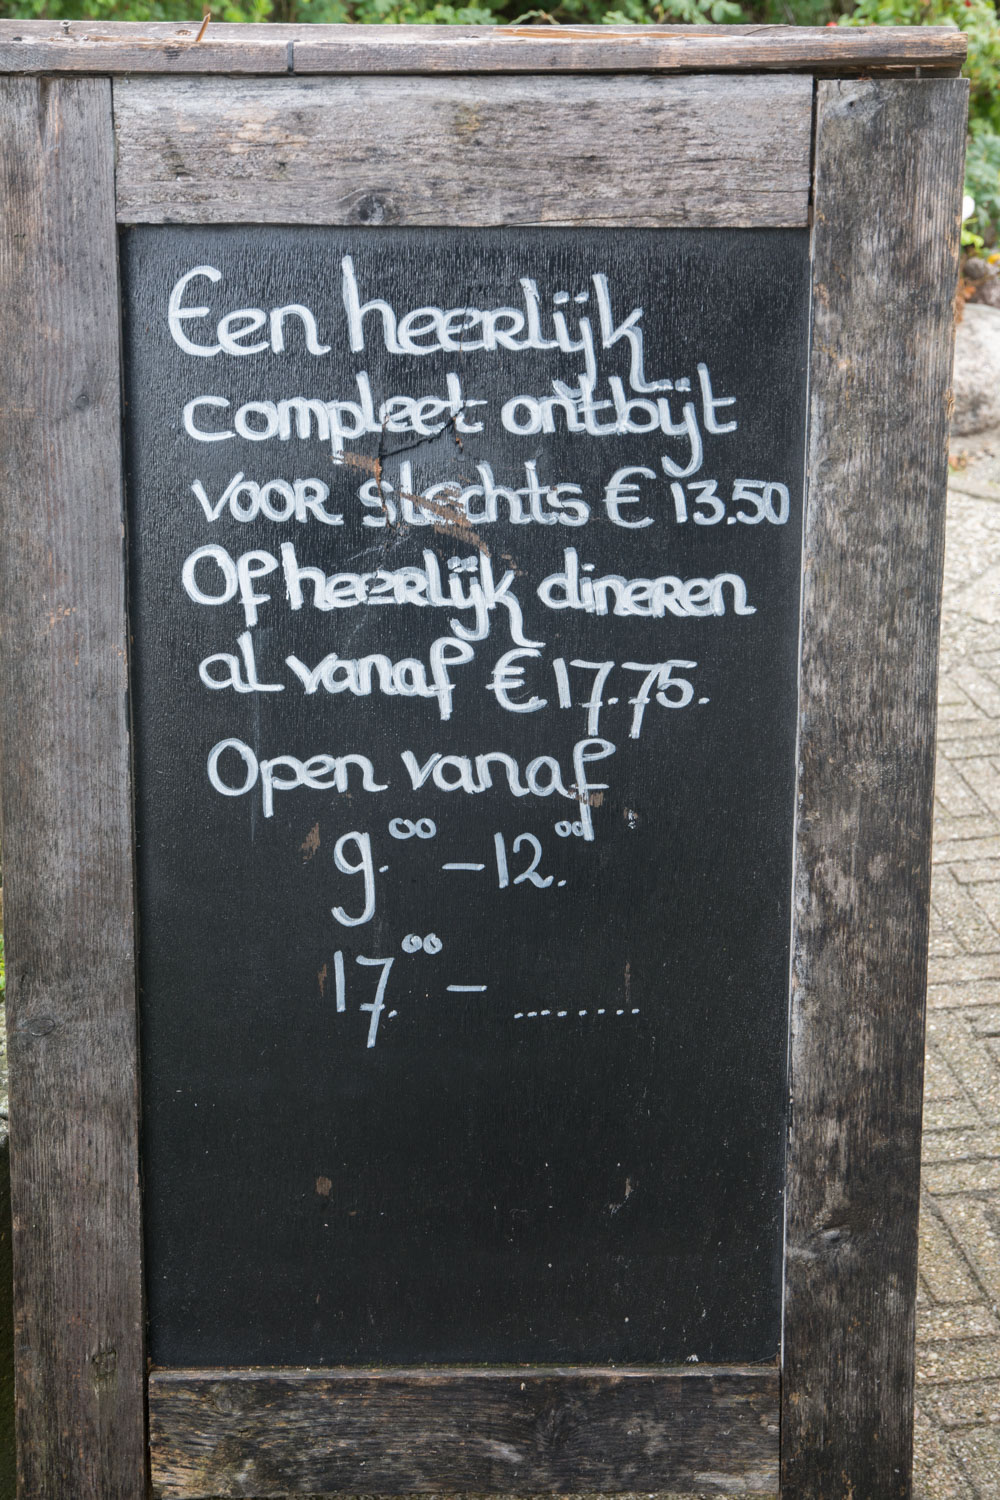 Een heerlijk
compleet ontbijt
voor slechts € 13.50
Of heerlijk dineren
al vanaf € 17.75.
Open vanaf
9.00 – 12.00
17.00 – ........